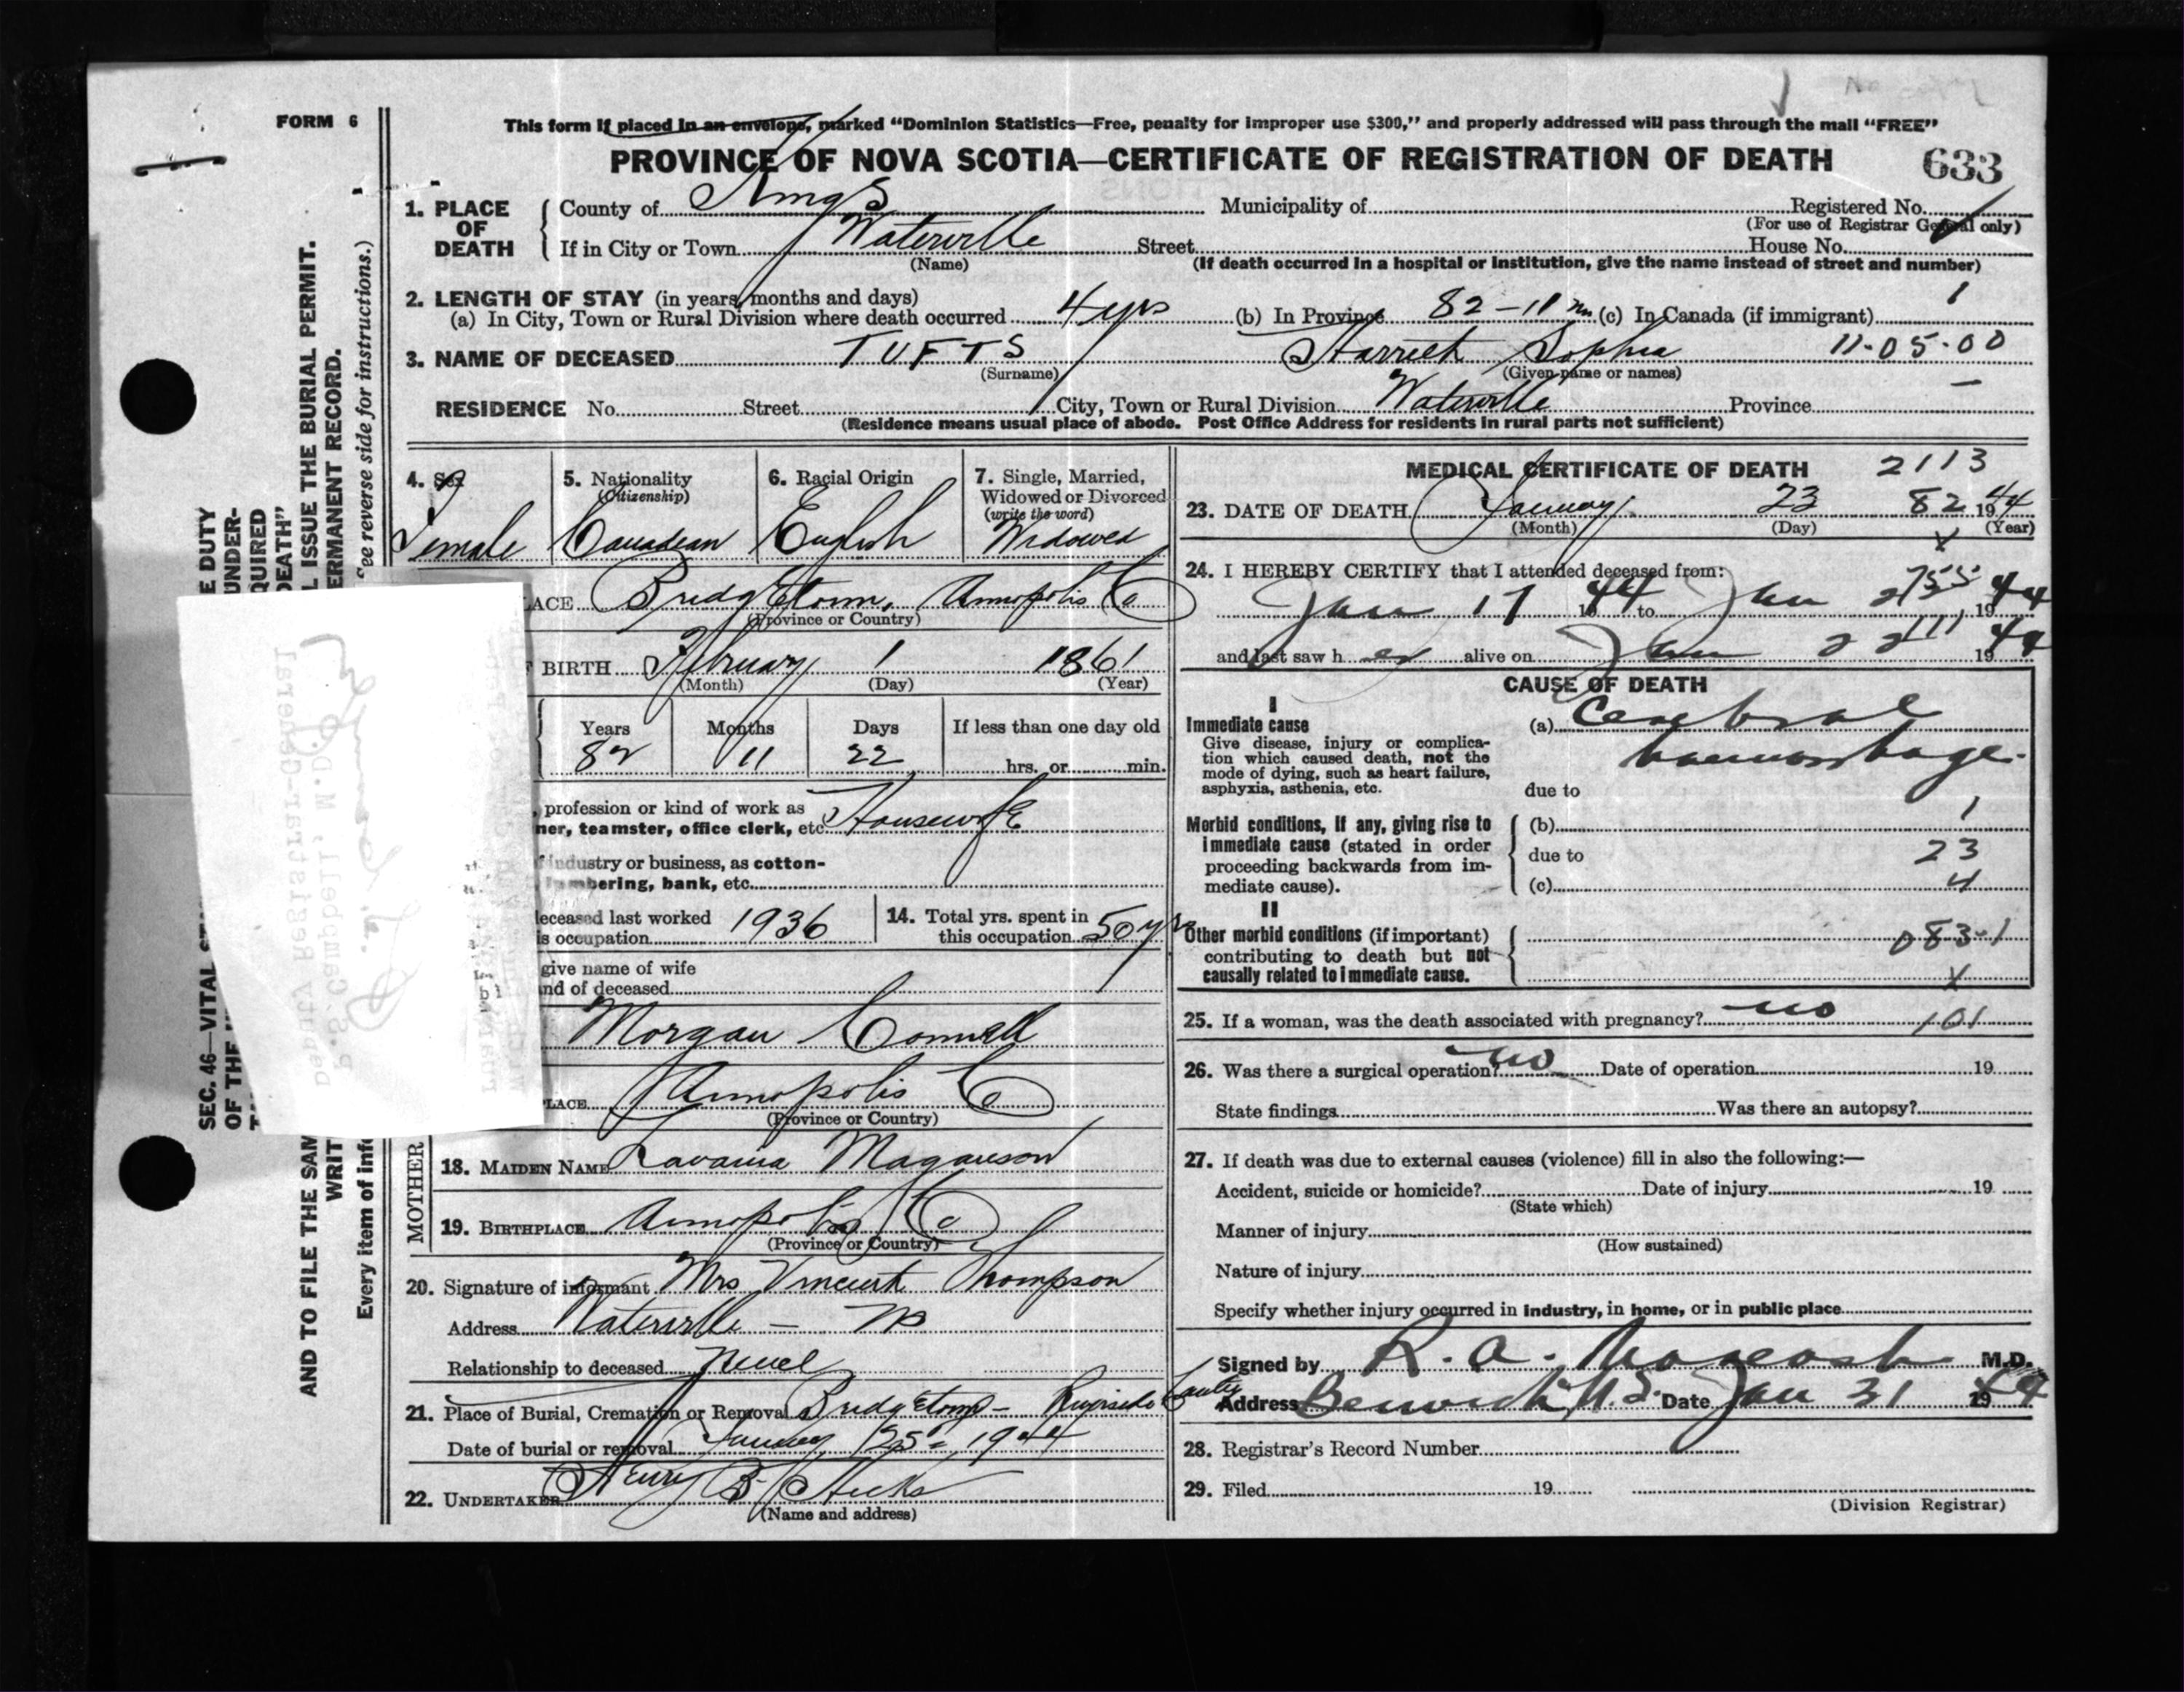 FORM 6
This form if placed in an envelope, marked “Dominion Statistics—Free, penalty for improper use $300,” and properly addressed will pass through the mail “FREE”
PROVINCE OF NOVA SCOTIA—CERTIFICATE OF REGISTRATION OF DEATH 633
1. PLACE OF DEATH
County of Kings Municipality of Registered No.
(For use of Registrar General only)
If in City or Town Waterville Street House No.
(Name) (If death occurred in a hospital or institution, give the name instead of street and number)
2. LENGTH OF STAY (in years, months and days)
(a) In City, Town or Rural Division where death occurred 4 yrs (b) In Province 82-11 m (c) In Canada (if immigrant) 1
3. NAME OF DECEASED TUFTS Harriett Sophia 11-05-00
(Surname) (Given name or names)
RESIDENCE No. Street City, Town or Rural Division Waterville Province —
(Residence means usual place of abode. Post Office Address for residents in rural parts not sufficient)
4. Sex 5. Nationality (Citizenship) 6. Racial Origin 7. Single, Married, Widowed or Divorced (write the word)
Female Canadian English Widowed
ACE Bridgetown, Annapolis Co
(Province or Country)
BIRTH February 1 1861
(Month) (Day) (Year)
Years Months Days If less than one day old
82 11 22 hrs. or min.
profession or kind of work as
ner, teamster, office clerk, etc. Housewife
industry or business, as cotton-
mbering, bank, etc.
eceased last worked
is occupation 1936
14. Total yrs. spent in
this occupation 50 yrs
give name of wife
nd of deceased
Morgan Connell
LACE Annapolis Co
(Province or Country)
MOTHER
18. MAIDEN NAME Lavania Maganson
19. BIRTHPLACE Annapolis Co
(Province or Country)
20. Signature of informant Mrs Vincent Thompson
Address Waterville — NS
Relationship to deceased
21. Place of Burial, Cremation or Removal Bridgetown — Riverside
Date of burial or removal January 25 1944
22. UNDERTAKER Henry B. Hicks
(Name and address)
MEDICAL CERTIFICATE OF DEATH 2113
23. DATE OF DEATH January 23 82 1944
(Month) (Day) (Year)
X
24. I HEREBY CERTIFY that I attended deceased from:
Jan 17 1944 to Jan 1944
and last saw her alive on Jan 22 1944
CAUSE OF DEATH
I
Immediate cause
Give disease, injury or complica-
tion which caused death, not the
mode of dying, such as heart failure,
asphyxia, asthenia, etc.
(a) Cerebral
haemorrhage.
due to
1
Morbid conditions, if any, giving rise to
immediate cause (stated in order
proceeding backwards from im-
mediate cause).
(b)
due to 23
(c) 4
II
Other morbid conditions (if important)
contributing to death but not
causally related to immediate cause.
083-1
X
25. If a woman, was the death associated with pregnancy? no 101
26. Was there a surgical operation? no Date of operation 19
State findings Was there an autopsy?
27. If death was due to external causes (violence) fill in also the following:—
Accident, suicide or homicide? Date of injury 19
(State which)
Manner of injury
(How sustained)
Nature of injury
Specify whether injury occurred in industry, in home, or in public place
Signed by R. A. M.D.
Address Berwick N.S. Date Jan 31 1944
28. Registrar’s Record Number
29. Filed 19
(Division Registrar)
E DUTY
UNDER-
QUIRED
DEATH”
L ISSUE THE BURIAL PERMIT.
ERMANENT RECORD.
See reverse side for instructions.)
SEC. 46—VITAL
OF THE
AND TO FILE THE SAM
WRIT
Every item of info
P.S. Campbell, M.D.
Deputy Registrar-General